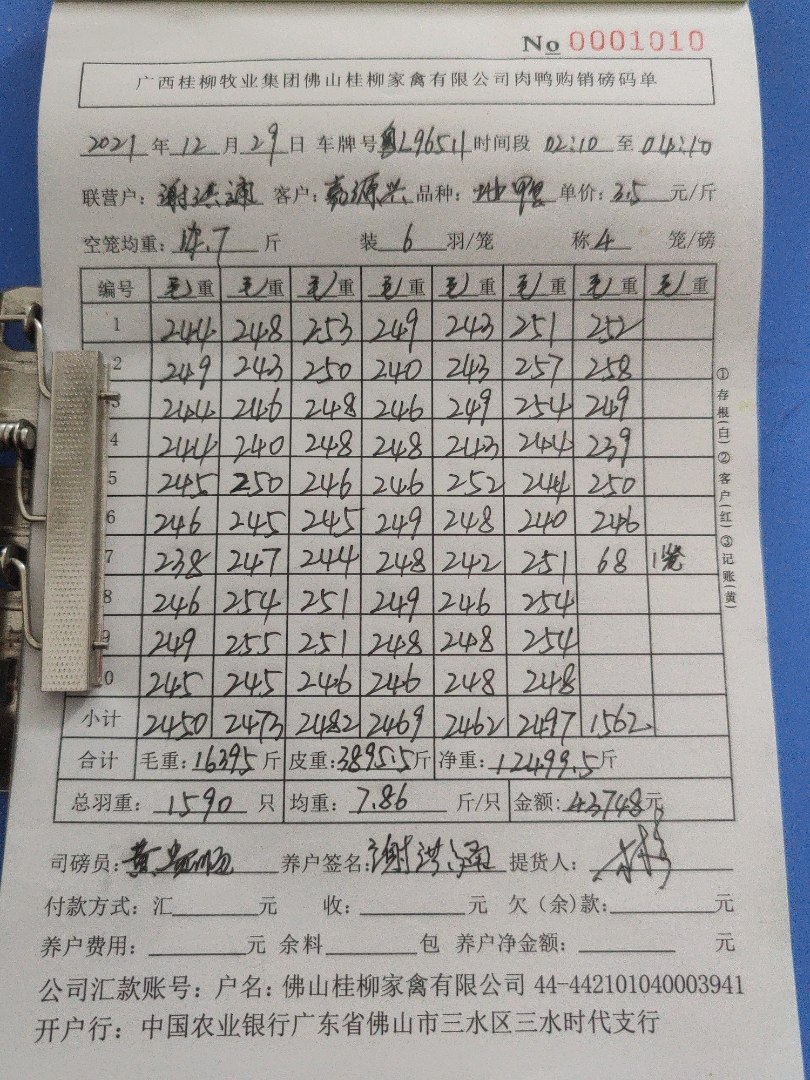 No 0001010
广西桂柳牧业集团佛山桂柳家禽有限公司肉鸭购销磅码单
2021 年 12 月 29 日 车牌号 粤L96511 时间段 02:10 至 04:10
联营户: 谢洪通 客户: 源兴 品种: 鸭 单价: 3.5 元/斤
空笼均重: 14.7 斤 装 6 羽/笼 称 4 笼/磅
编号 毛重 毛重 毛重 毛重 毛重 毛重 毛重 毛重
1 244 248 253 249 243 251 252
2 249 243 250 240 243 257 258
3 244 246 248 246 249 254 249
4 244 240 248 248 243 244 239
5 245 250 246 246 252 244 250
6 246 245 245 249 248 240 246
7 238 247 244 248 242 251 68 1笼
8 246 254 251 249 246 254
9 249 255 251 248 248 254
0 245 245 246 246 248 248
小计 2450 2473 2482 2469 2462 2497 1562
合计 毛重: 16395 斤 皮重: 3895.5 斤 净重: 12499.5 斤
总羽重: 1590 只 均重: 7.86 斤/只 金额: 43748 元
司磅员: 黄 养户签名: 谢洪通 提货人:
付款方式: 汇 元 收: 元 欠(余)款: 元
养户费用: 元 余料 包 养户净金额: 元
公司汇款账号: 户名: 佛山桂柳家禽有限公司 44-442101040003941
开户行: 中国农业银行广东省佛山市三水区三水时代支行
①存根(白)②客户(红)③记账(黄)